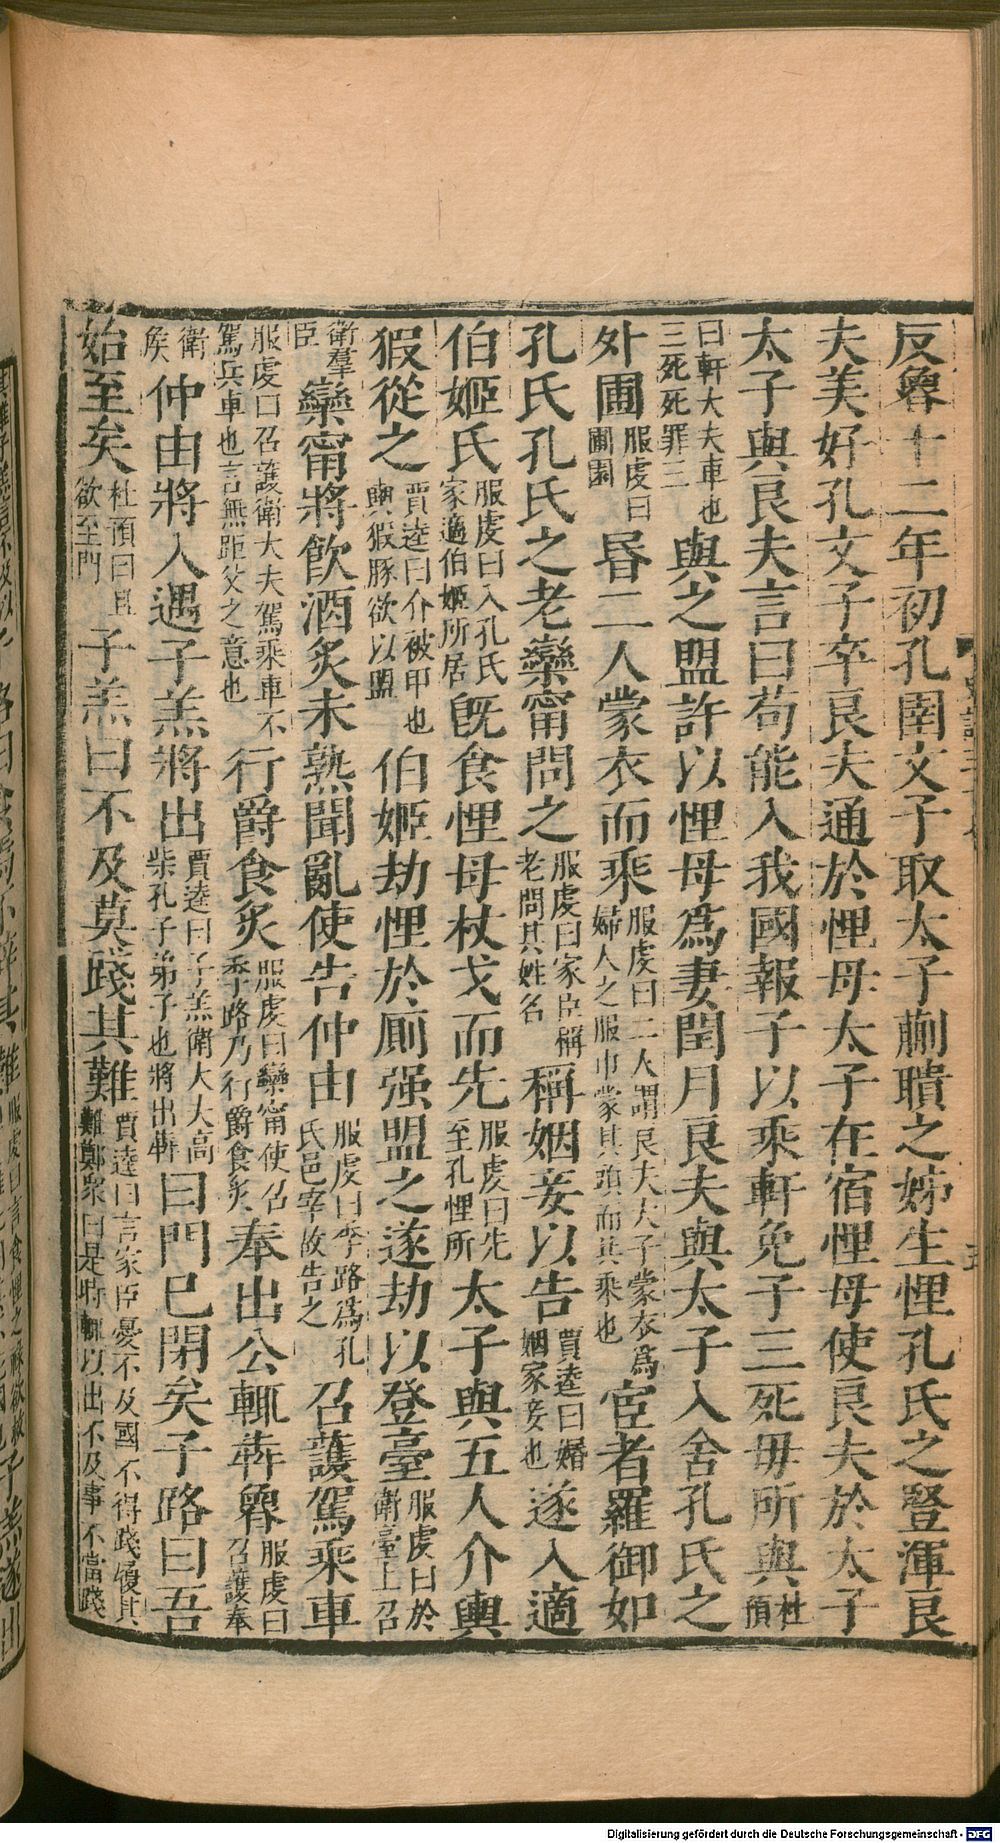 反魯十二年初孔圉文子取太子蒯聵之姊生悝孔氏之豎渾良
夫美好孔文子卒良夫通於悝母太子在宿悝母使良夫於太子
太子與良夫言曰苟能入我國報子以乘軒免子三死毋所與杜預
曰軒大夫車也三死死罪三與之盟許以悝母爲妻閏月良夫與太子入舍孔氏之
外圃服虔曰圃園昬二人蒙衣而乘服虔曰二人謂良夫太子蒙衣爲婦人之服巾蒙其頭而共乘也宦者羅御如
孔氏孔氏之老欒甯問之服虔曰家臣稱老問其姓名稱姻妾以告賈逵曰婚姻家妾也遂入適
伯姬氏服虔曰入孔氏家適伯姬所居旣食悝母杖戈而先服虔曰先至孔悝所太子與五人介輿
猳從之賈逵曰介被甲也輿猳豚欲以盟伯姬劫悝於廁强盟之遂劫以登臺服虔曰於衛臺上召
衛羣臣欒甯將飮酒炙未熟聞亂使告仲由服虔曰季路爲孔氏邑宰故告之召護駕乘車
服虔曰召護衛大夫駕乘車不駕兵車也言無距父之意也行爵食炙服虔曰欒甯使召季路乃行爵食炙奉出公輒奔魯服虔曰召護奉
衛矦仲由將入遇子羔將出賈逵曰子羔衛大夫高柴孔子弟子也將出奔曰門已閉矣子路曰吾
始至矣杜預曰且欲至門子羔曰不及莫踐其難賈逵曰言家臣憂不及國不得踐履其難鄭衆曰是時輒以出不及事不當踐
Digitalisierung gefördert durch die Deutsche Forschungsgemeinschaft - DFG